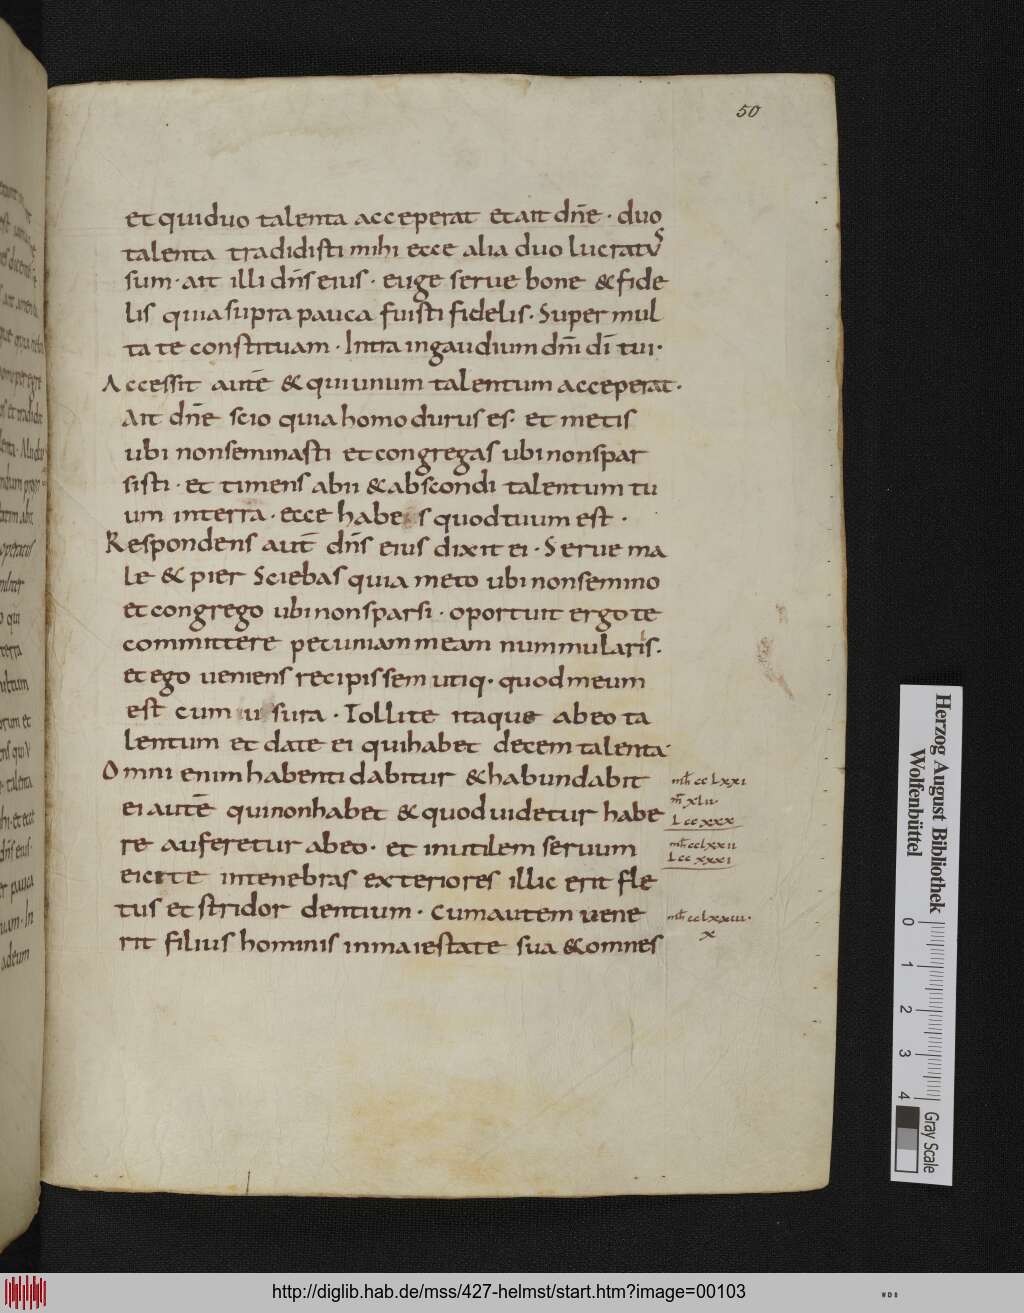 50
et qui duo talenta acceperat et ait dñe · duo
talenta tradidisti mihi ecce alia duo lucratus
sum · ait illi dñs eius · euge serue bone & fide
lis quia supra pauca fuisti fidelis · Super mul
ta te constituam · Intra in gaudium dnĩ dĩ tui ·
Accessit autē & qui unum talentum acceperat ·
Ait dñe scio quia homo durus es · et metis
ubi non seminasti et congregas ubi non spar
sisti · et timens abii & abscondi talentum tu
um in terra · ecce habes quod tuum est ·
Respondens aut̄ dñs eius dixit ei · Serue ma
le & pier Sciebas quia meto ubi non semino
et congrego ubi non sparsi · oportuit ergo te
committere pecuniam meam nummularis ·
et ego ueniens recipissem utiq · quod meum
est cum usura · Tollite itaque ab eo ta
lentum et date ei qui habet decem talenta ·
Omni enim habenti dabitur & habundabit
ei autē qui non habet & quod uidetur habe
re auferetur ab eo · et inutilem seruum
eicite in tenebras exteriores illic erit fle
tus et stridor dentium · Cum autem uene
rit filius hominis in maiestate sua & omnes
mt̄ cclxxi
m̄ xlii
L ccxxx
mt̄ cclxxii
L ccxxxi
mt̄ cclxxiii ·
x
Herzog August Bibliothek
Wolfenbüttel
0 1 2 3 4
Gray Scale
http://diglib.hab.de/mss/427-helmst/start.htm?image=00103